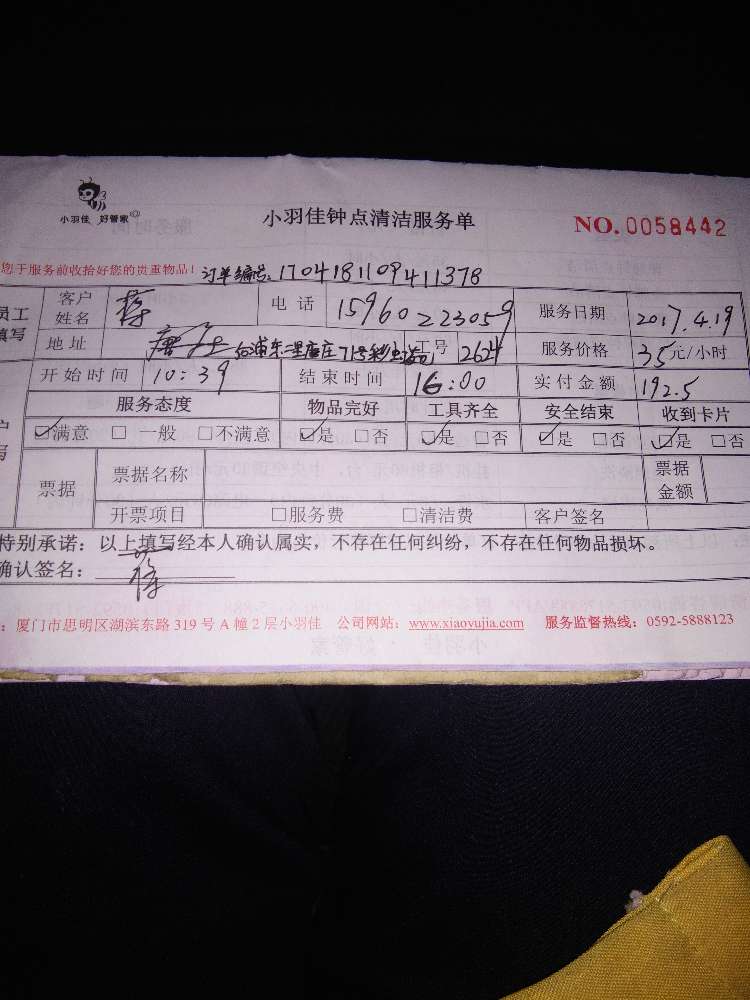 小羽佳 好管家
小羽佳钟点清洁服务单 NO.0058442
您于服务前收拾好您的贵重物品! 订单编号:1704181109411378
员工填写 客户姓名 电话 15960223059 服务日期 2017.4.19
地址 工号 2624 服务价格 35元/小时
开始时间 10:39 结束时间 16:00 实付金额 192.5
服务态度 物品完好 工具齐全 安全结束 收到卡片
☑满意 □一般 □不满意 ☑是 □否 ☑是 □否 ☑是 □否 ☑是 □否
票据 票据名称 票据金额
开票项目 □服务费 □清洁费 客户签名
特别承诺:以上填写经本人确认属实,不存在任何纠纷,不存在任何物品损坏。
确认签名:
:厦门市思明区湖滨东路 319 号 A 幢 2 层小羽佳 公司网站:www.xiaoyujia.com 服务监督热线:0592-5888123